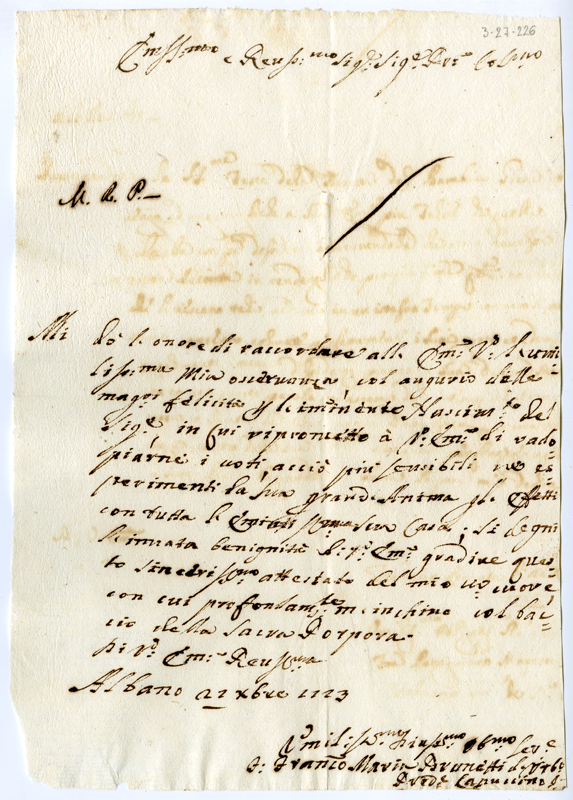 3-27-226
Em.ss:mo e Reus:mo Sig:e Sig:e Pr:e Col:mo
M. R. P.
Mi dò l'onore di raccordare all' Em:a V:a l'umi=
lis:ma Mia osservanza col augurio delle
magri felicità p l'iminente Nascim:to del
Sig:e in cui riprometto à V:a Em:a di rado=
piarne i voti, acciò più sensibili ne es=
perimenti la sua grand' Anima gli effetti
con tutta l' sua Casa; si degni
l'innata benignità di V:a Em:a gradire ques=
to sincerissmo attestato del mio cuore,
con cui profondam:te m'inchino col bac=
cio della Sacra Porpora.
Di V:a Em:a Reus:ma
Albano 21 xbre 1723
Umilis:mo Diuot:mo Ob:mo Ser:e
F. Franco Maria Brunetti
Capuccino